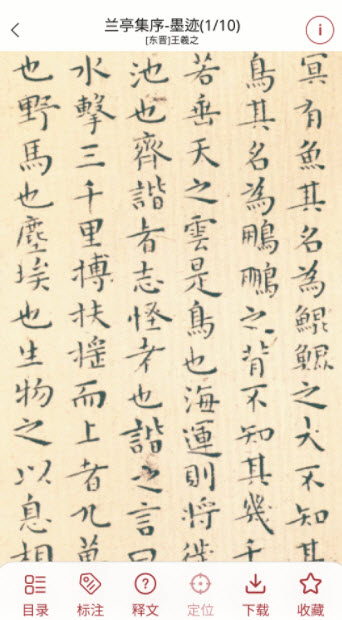 兰亭集序-墨迹(1/10)
[东晋]王羲之
冥有魚其名為鯤鯤之大不知其
鳥其名為鵬鵬之背不知其幾千
若垂天之雲是鳥也海運則將徙
池也齊諧者志怪者也諧之言曰
水擊三千里摶扶搖而上者九萬
也野馬也塵埃也生物之以息相
目录
标注
释文
定位
下载
收藏